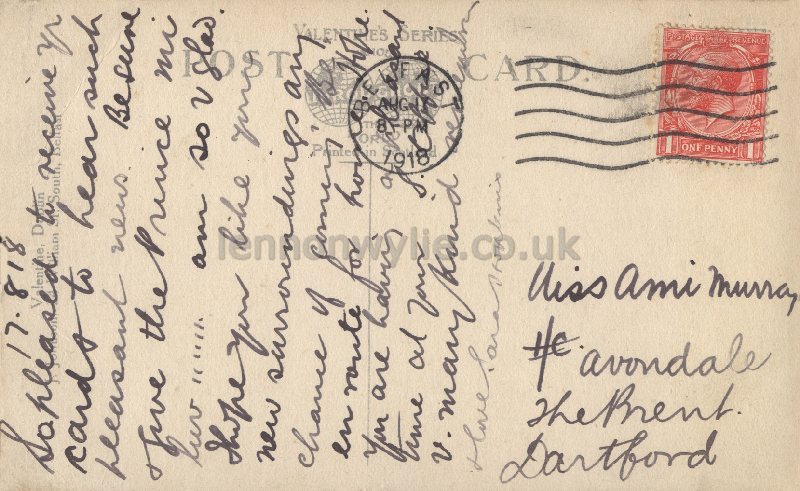 VALENTINE'S SERIES
POST CARD.
Printed in
BELFAST
AUG 17
8 - PM
1918
POSTAGE REVENUE
ONE PENNY
Valentine, Dublin
South, Belfast
17.8.18
So pleased to receive yr
cards & to hear such
pleasant news. Be sure
& give the Prince mi
luv """ am so v glad.
I hope you like your
new surroundings any
chance of coming
en route for home. Hope
you are having a
time at your
v. many kind
& love
Miss Ami Murray
Avondale
The Brent.
Dartford
lennonwylie.co.uk